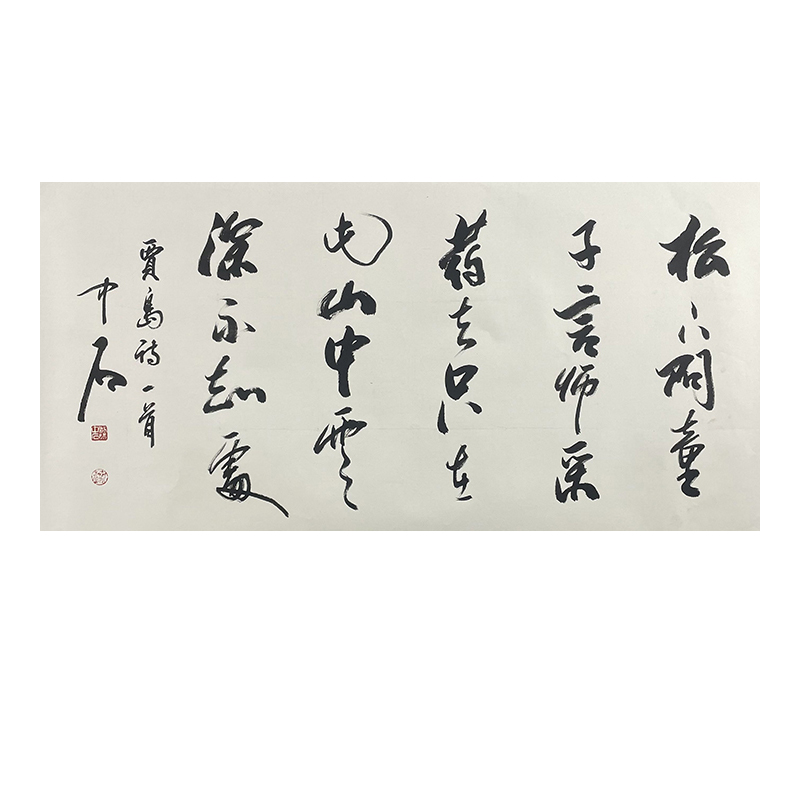 松下問童
子言師采
葯去只在
此山中雲
深不知處
賈島詩一首
中石